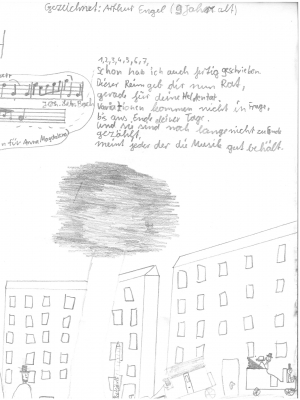 Gezeichnet: Arthur Engel (9 Jahre alt)
1,2,3,4,5,6,7,
Schon hab ich auch fertig geschrieben
Dieser Reim geb dir nun Rat,
gerade für deine Heldentat.
Variationen kommen nicht in Frage,
bis ans Ende deiner Tage.
Und sie sind noch lange nicht zu Ende
gezählt,
meint jeder der die Musik gut behält.
Joh. Seb. Bach
für Anna Magdalena